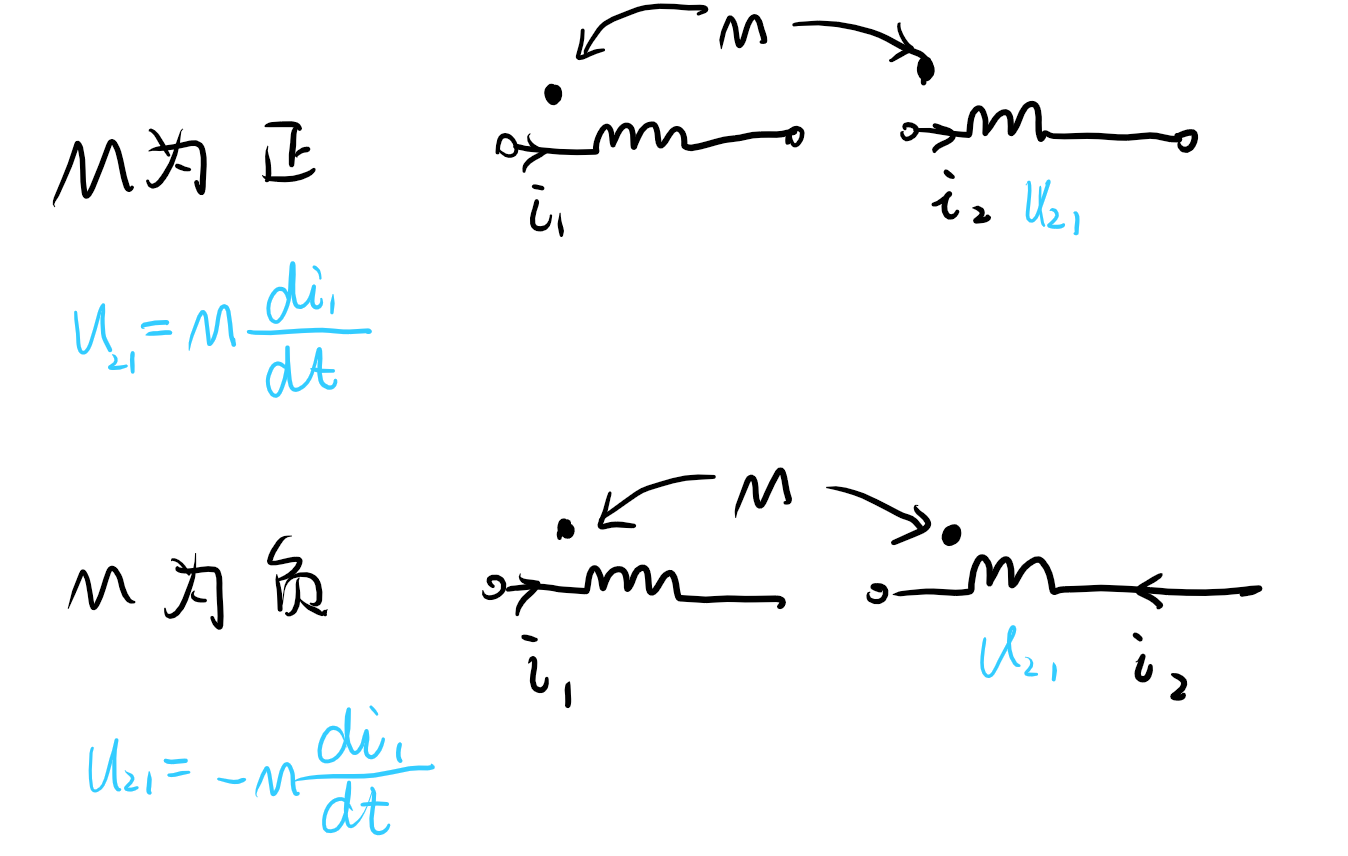 M
M为正
i₁
i₂ u₂₁
u₂₁ = M di₁/dt
M
M为负
i₁
u₂₁ i₂
u₂₁ = -M di₁/dt